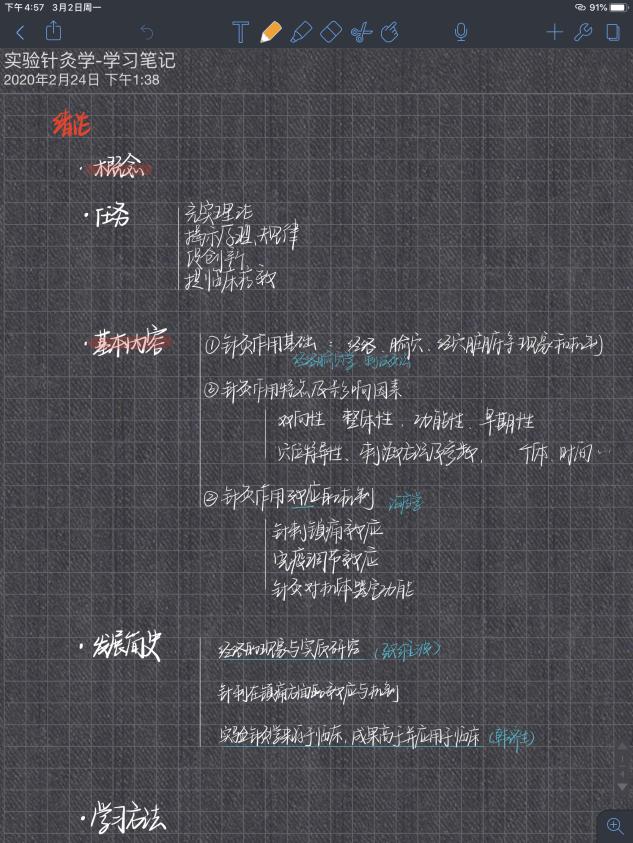 下午4:57 3月2日周一
91%
实验针灸学-学习笔记
2020年2月24日 下午1:38
绪论
·概念
·任务
充实理论
揭示原理、规律
创新
提临床疗效
·基本内容
①针灸作用基础：经络、腧穴、经穴脏腑等现象和机制
经络腧穴学 刺法灸法
②针灸作用特点及影响因素
双向性 整体性、功能性、早期性
穴位特异性、刺激方法及参数、 个体、时间…
③针灸作用效应和机制 治疗学
针刺镇痛效应
免疫调节效应
针灸对机体器官功能
·发展简史
经络的现象与实质研究（张维波）
针刺在镇痛方面的效应与机制
实验针灸学来源于临床，成果高于并应用于临床（韩济生）
·学习方法